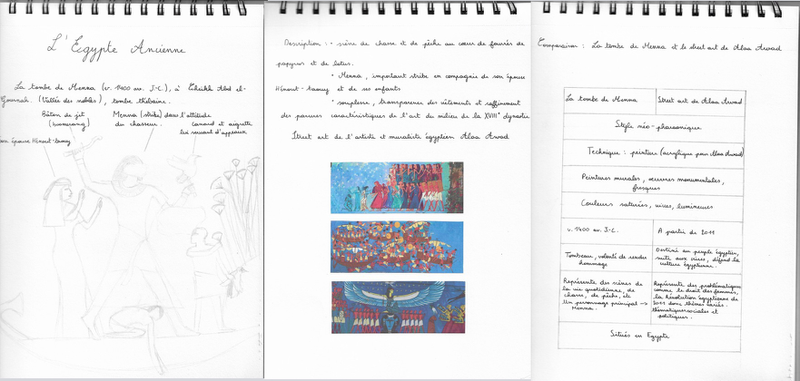 L'Egypte Ancienne
La tombe de Menna (v. 1400 av. J-C), à Cheikh Abd el-
Gournah. (Vallée des nobles), tombe thébaine.
Bâton de jet
(boomerang)
Menna (scribe) dans l'attitude
du chasseur.
canard et aigrette
lui servant d'appeaux
son épouse Hénout-taouy
Description : • scène de chasse et de pêche au coeur de fourrés de
papyrus et de lotus.
• Menna, important scribe en compagnie de son épouse
Hénout-taouy et de ses enfants
• souplesse, transparence des vêtements et raffinement
des parures caractéristiques de l'art du milieu de la XVIIIe dynastie
Street art de l'artiste et muraliste égyptien Alaa Awad
Comparaison : La tombe de Menna et le street art de Alaa Awad
La tombe de Menna
Street art de Alaa Awad
Style néo-pharaonique
Technique : peinture (acrylique pour Alaa Awad)
Peintures murales, oeuvres monumentales,
fresques
Couleurs saturées, vives, lumineuses
v. 1400 av. J-C.
A partir de 2011
Tombeau, volonté de rendre
hommage
Destiné au peuple égyptien,
suite aux crises, défend la
culture égyptienne.
Représente des scènes de
la vie quotidienne, de
chasse, de pêche, etc
Un personnage principal →
Menna.
Représente des problématiques
comme le droit des femmes,
la Révolution égyptienne de
2011 donc thèmes variés.
thématiques sociales et
politiques.
Situés en Egypte